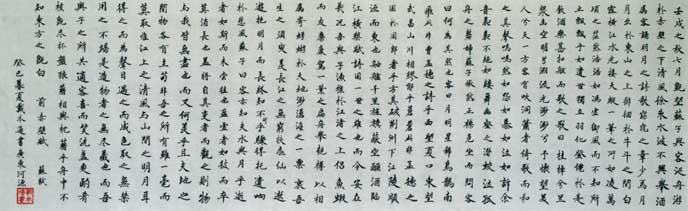 壬戌之秋七月既望蘇子與客泛舟游
於赤壁之下清風徐來水波不興舉酒
屬客誦明月之詩歌窈窕之章少焉月
出於東山之上徘徊於斗牛之間白
露橫江水光接天縱一葦之所如凌萬
頃之茫然浩浩如馮虛御風而不知所
止飄飄乎如遺世獨立羽化登僊於是
飲酒樂甚扣舷而歌之歌曰桂棹兮蘭
槳擊空明兮溯流光渺渺兮予懷望美
人兮天一方客有吹洞簫者倚歌而和
之其聲嗚嗚然如怨如慕如泣如訴餘
音裊裊不絕如縷舞幽壑之潛蛟泣孤
舟之嫠婦蘇子愀然正襟危坐而問客
曰何為其然也客曰月明星稀烏鵲南
飛此非曹孟德之詩乎西望夏口東望
武昌山川相繆鬱乎蒼蒼此非孟德之
困於周郎者乎方其破荊州下江陵順
流而東也舳艫千里旌旗蔽空釃酒臨
江橫槊賦詩固一世之雄也而今安在
哉況吾與子漁樵於江渚之上侶魚蝦
而友麋鹿駕一葉之扁舟舉匏樽以相
屬寄蜉蝣於天地渺滄海之一粟哀吾
生之須臾羨長江之無窮挾飛仙以遨
遊抱明月而長終知不可乎驟得托遺響
於悲風蘇子曰客亦知夫水與月乎逝
者如斯而未嘗往也盈虛者如彼而卒
莫消長也蓋將自其變者而觀之則物
與我皆無盡也而又何羨乎且天地之
間物各有主苟非吾之所有雖一毫而
莫取惟江上之清風與山間之明月耳
得之而為聲目遇之而成色取之無禁
用之不竭是造物者之無盡藏也而吾
與子之所共適客喜而笑洗盞更酌肴
核既盡杯盤狼藉相與枕藉乎舟中不
知東方之既白 前赤壁賦 蘇軾
癸巳暮夏戴木通書廣東河源